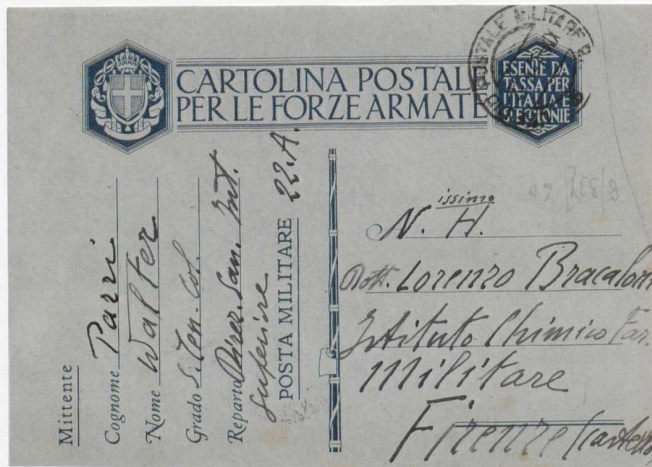 CARTOLINA POSTALE
PER LE FORZE ARMATE
ESENTE DA
TASSA PER
L'ITALIA E
COLONIE
POSTALE MILITARE
Mittente
Cognome Parri
Nome Walter
Grado S. Ten. Col.
Reparto Direz. San. Int.
Superiore
POSTA MILITARE 22.A.
issimo
N. H.
Dott. Lorenzo Bracaloni
Istituto Chimico Far.
Militare
Firenze (Castello